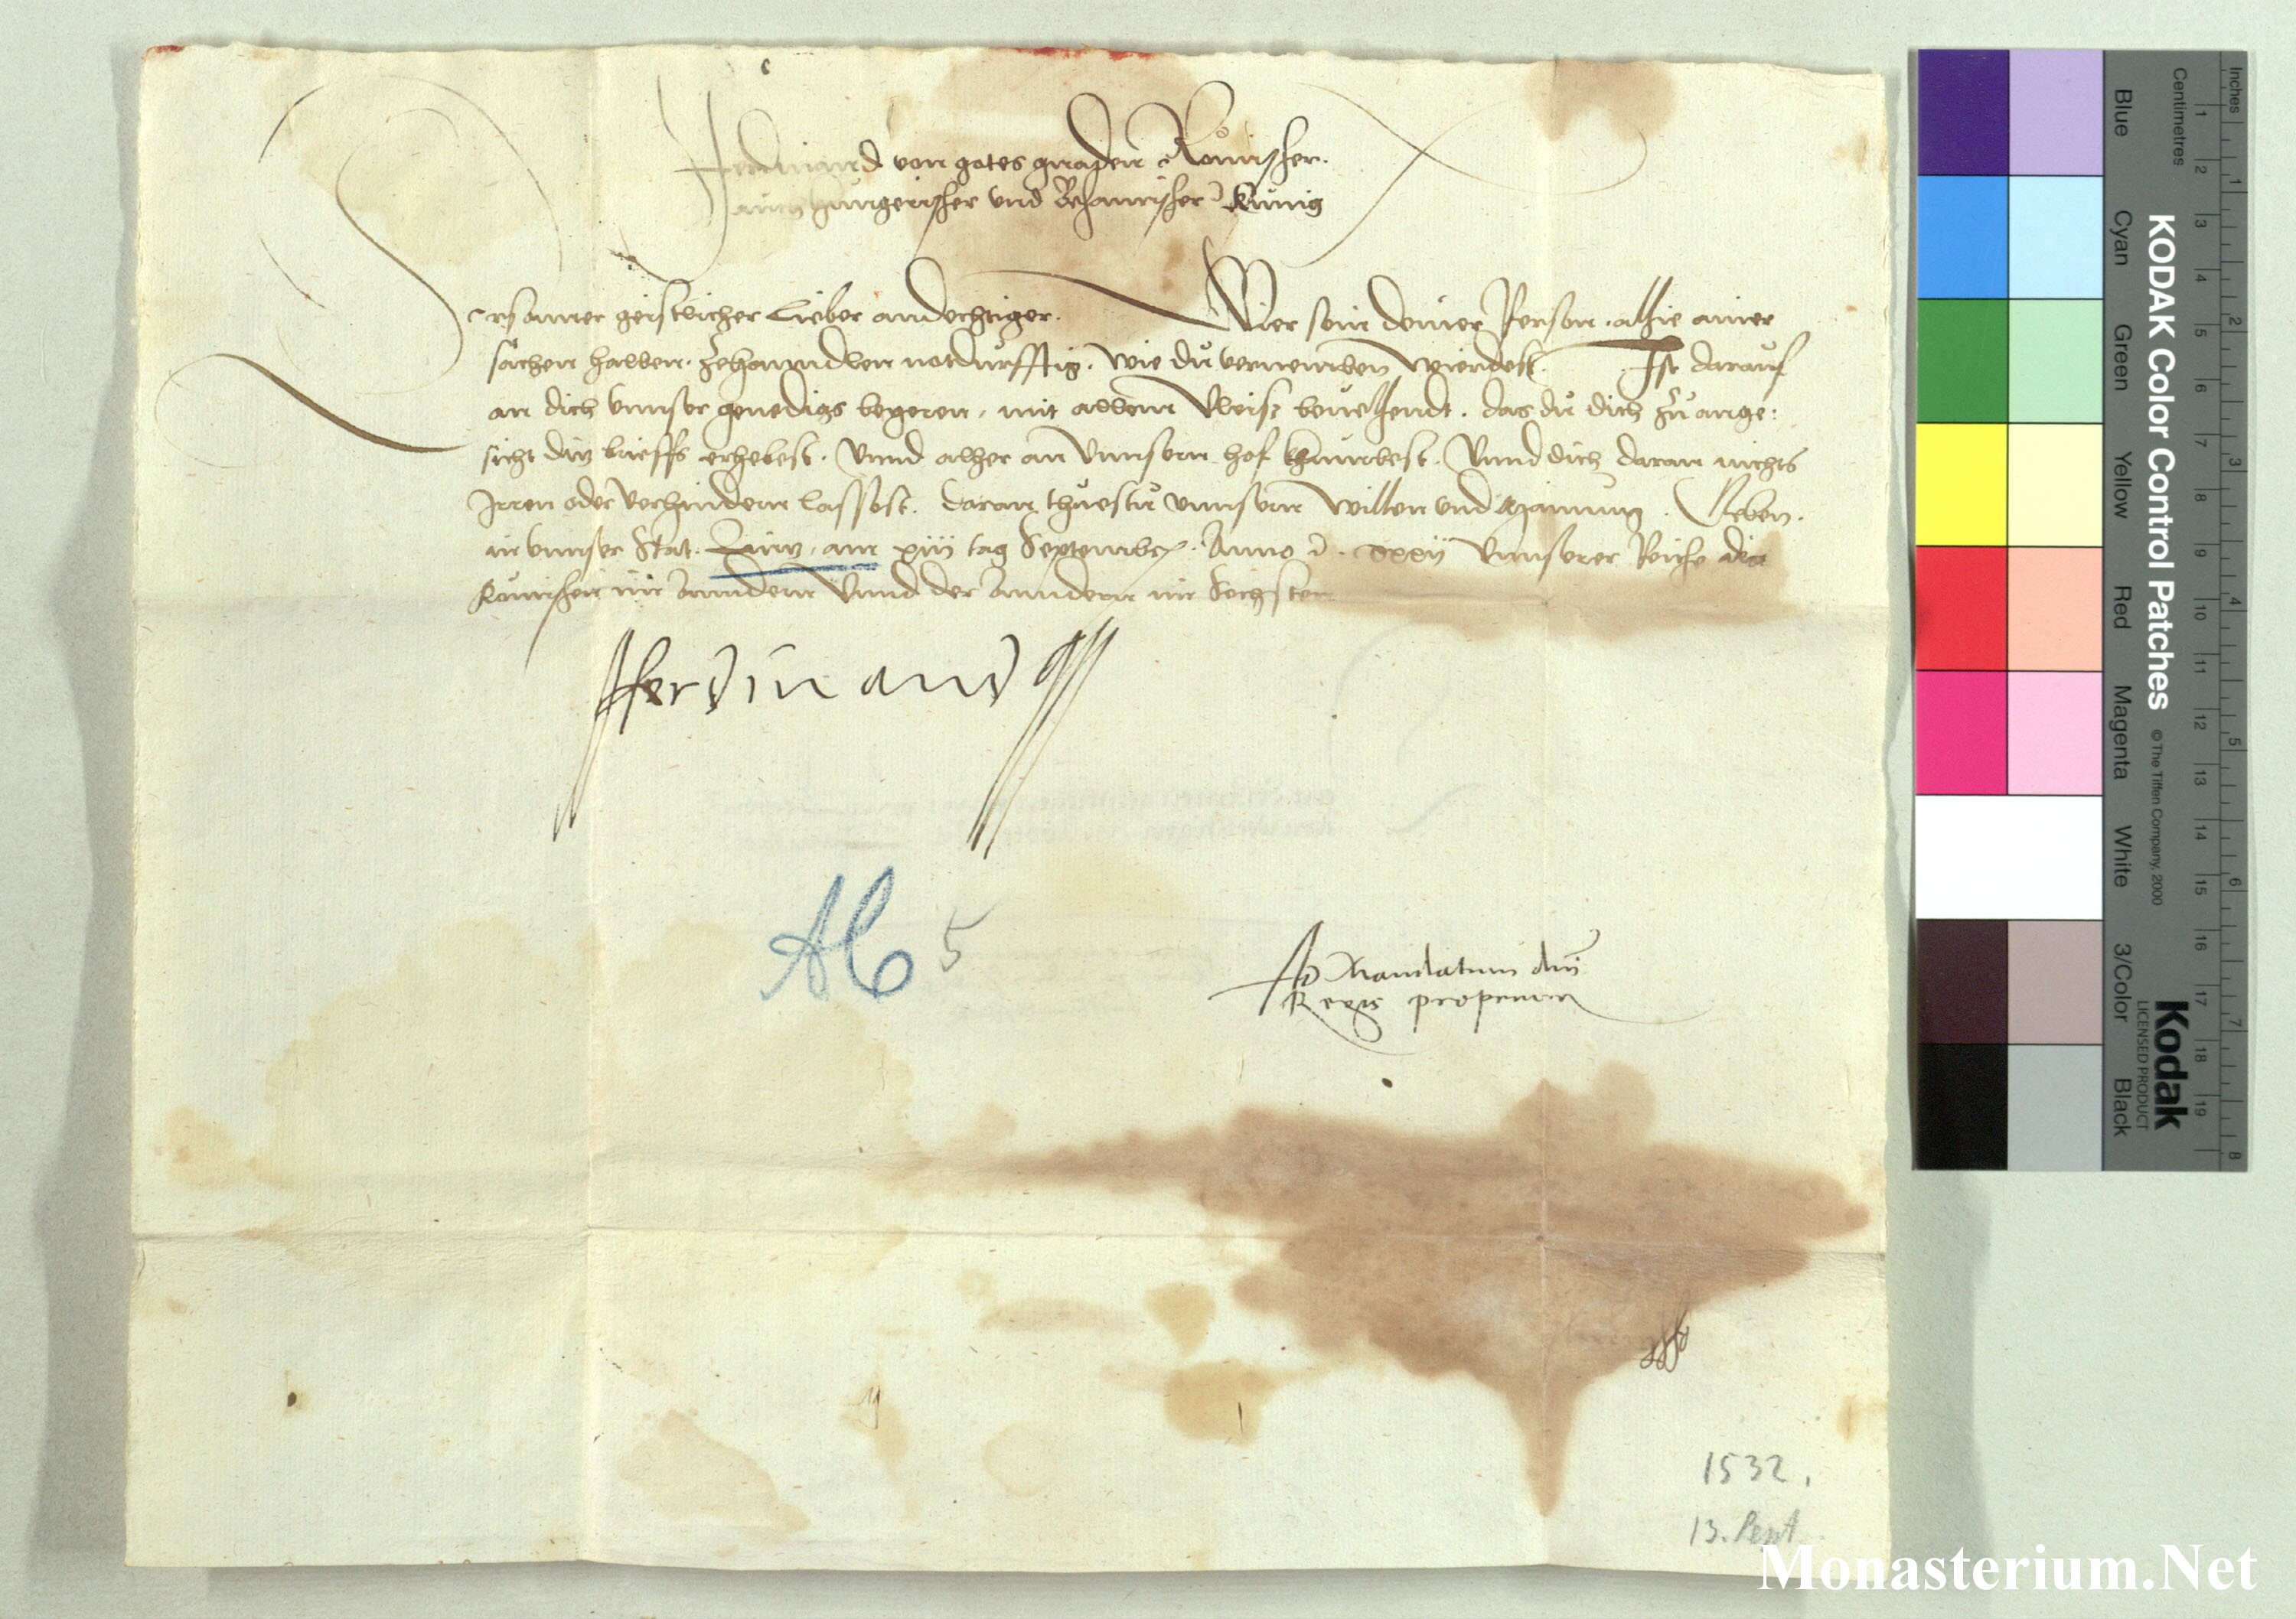 Ferdinand von gotes gnaden Römischer.
auch hungerischer und Behamischer Kunig
Ersamer geistlicher lieber andechtiger. Wier sein deiner Person alhie ainer
sachen halben zehanndlen notdurfftig. wie du vernemben wierdest. Ist darauf
an dich unnser genedigs begeren, mit allem Vleiss bevelhendt. das du dich zu ange:
sicht ditz brieffs erhebest. Unnd alher an Unnsern hof khumbest. Unnd dich daran nichts
Irren oder Verhindern lassest. Daran thuestu unnsern Willen und Mainung. Geben
in unnser Stat Linnz am xiii tag Septembris. Anno ec. xxxii Unnserer Reiche des
Römischen im Anndern Unnd der Anndern im Sechsten
Ferdinand
Ad Mandatum dni
Regis proprium
5
1532.
13. Sept
KODAK Color Control Patches
© The Tiffen Company, 2000
Kodak
LICENSED PRODUCT
Inches
Centimetres
Blue
Cyan
Green
Yellow
Red
Magenta
White
3/Color
Black
1 2 3 4 5 6 7 8
1 2 3 4 5 6 7 8 9 10 11 12 13 14 15 16 17 18 19
Monasterium.Net